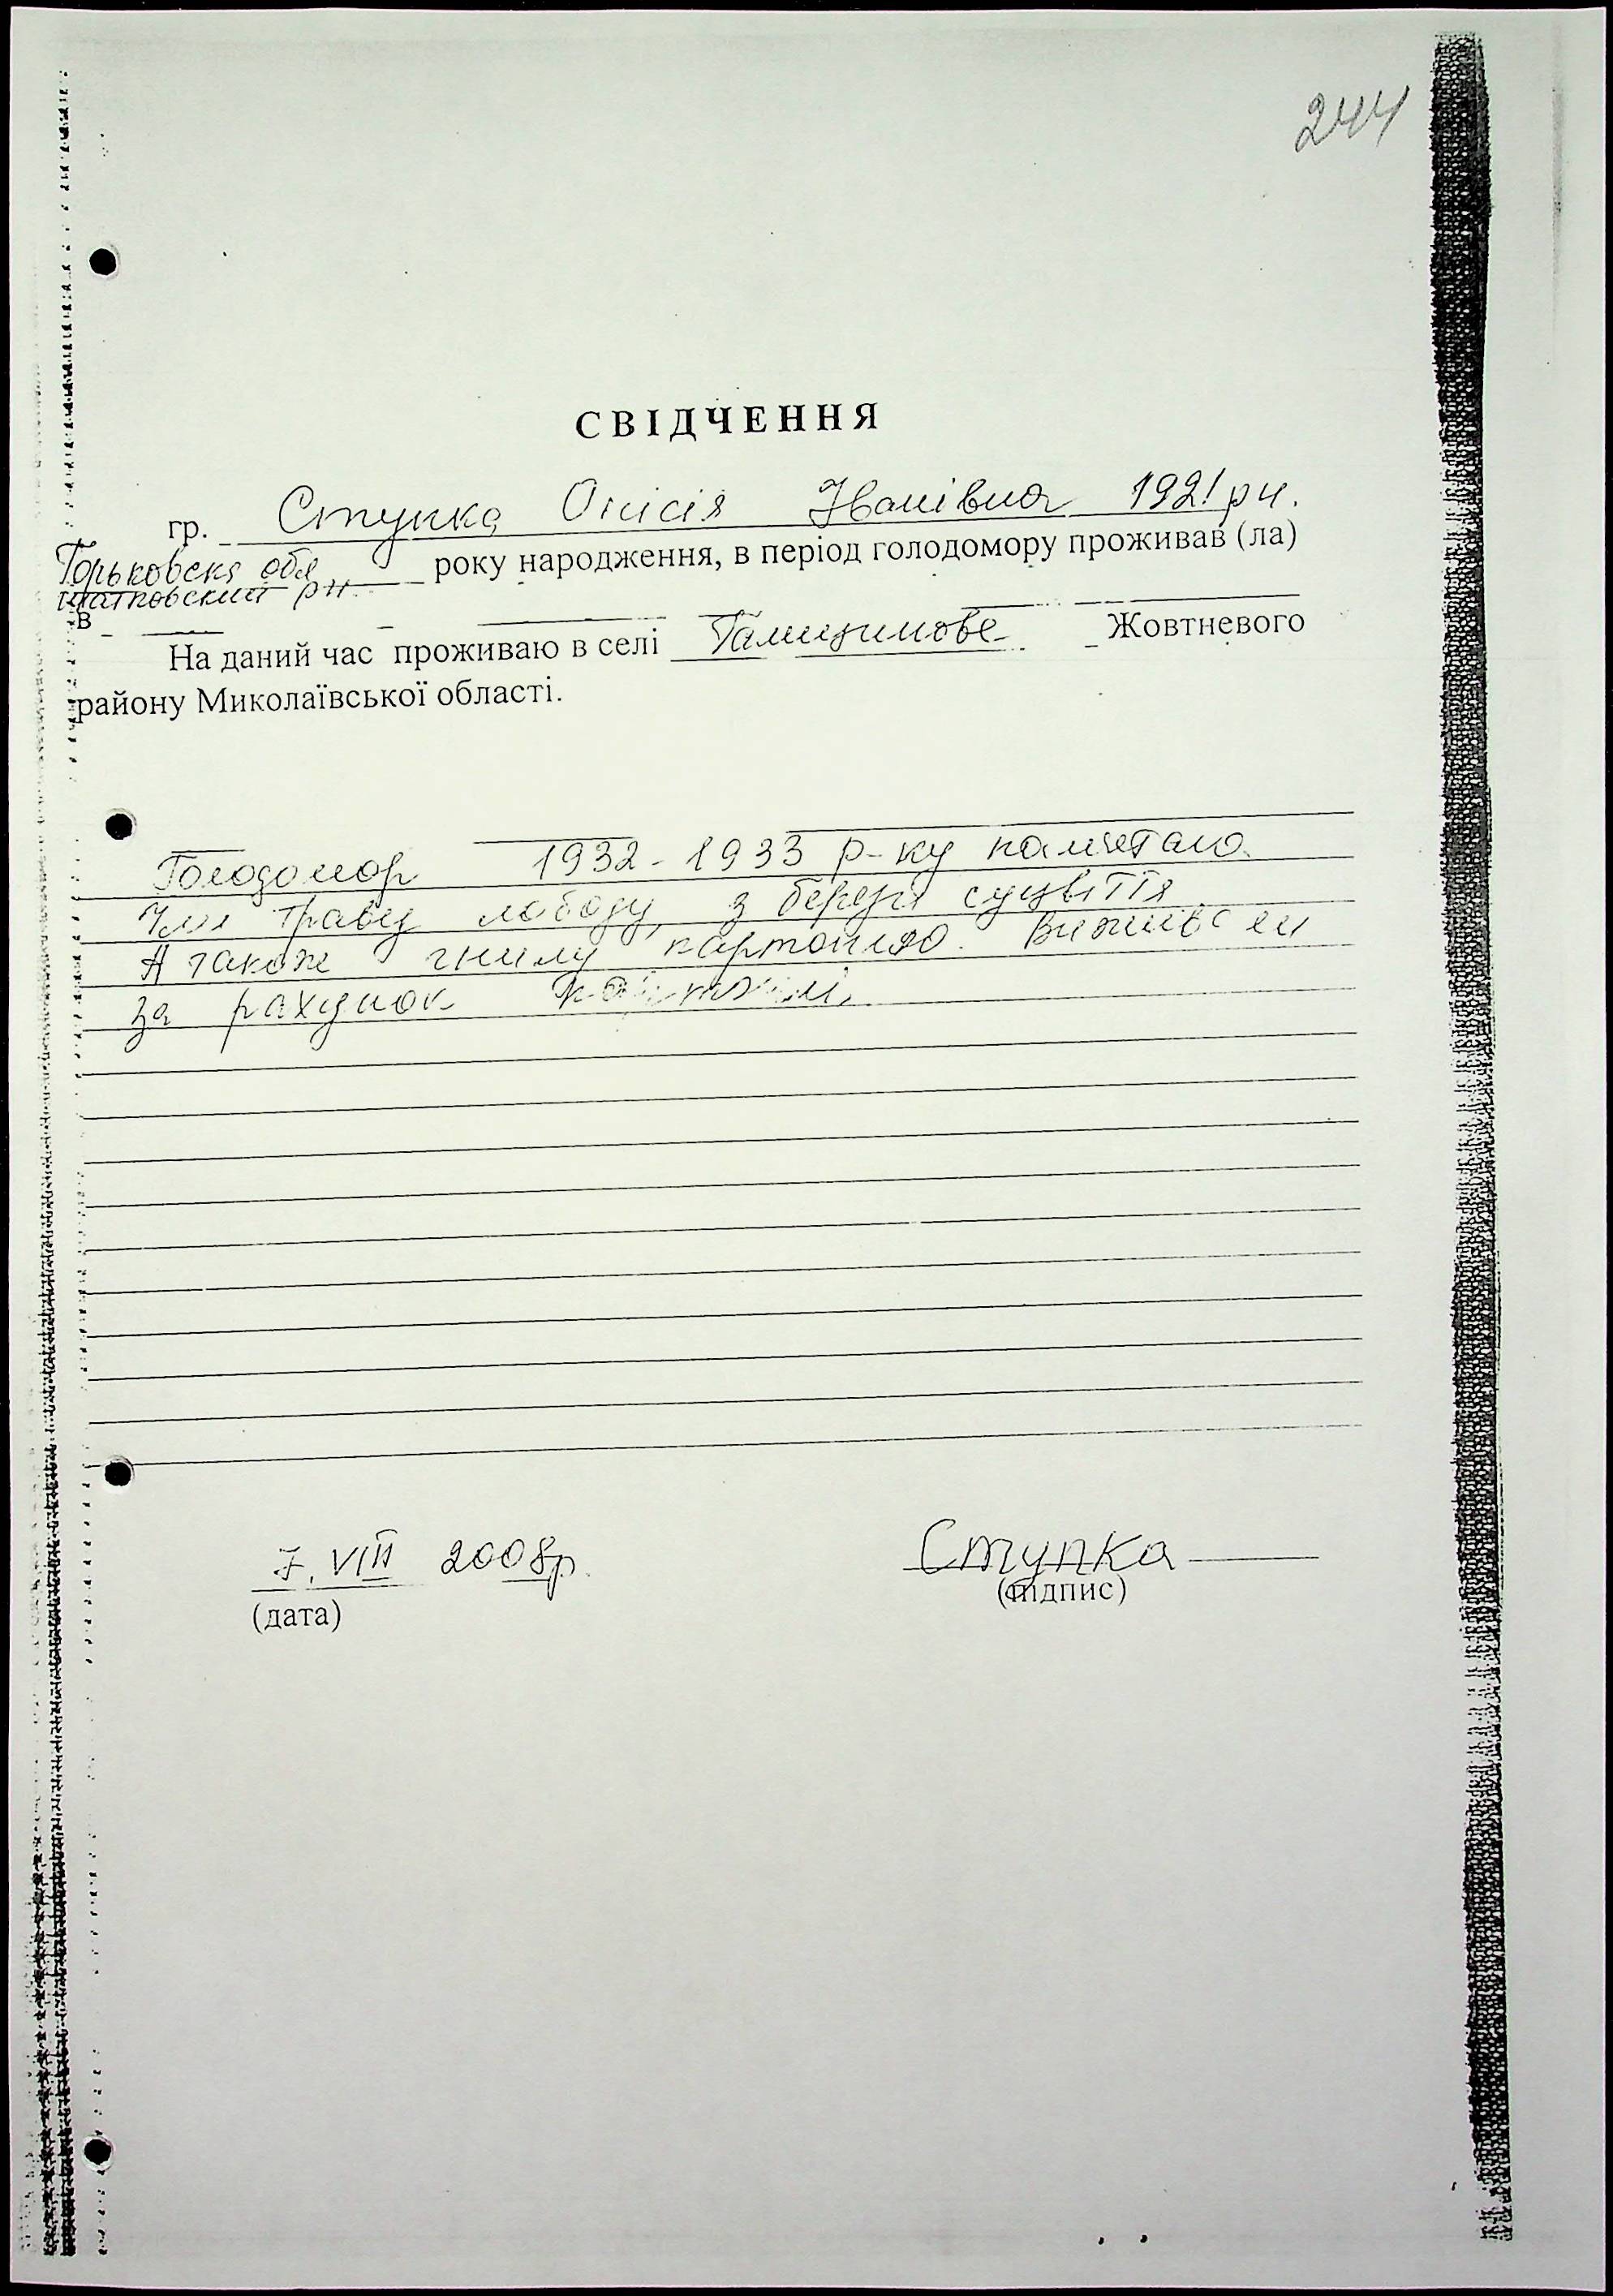 244
СВІДЧЕННЯ
гр. Ступка Онісія Іванівна 1921 рн.
Горьковска обл року народження, в період голодомору проживав (ла)
шатковский рн.
в
На даний час проживаю в селі Галицинове Жовтневого
району Миколаївської області.
Голодомор 1932-1933 р-ку памʼятаю.
Їли траву лободу, з берези суцвіття
А також гнилу картоплю. Вижив
за рахунок
7. VIII 2008р. Ступка
(дата) (підпис)